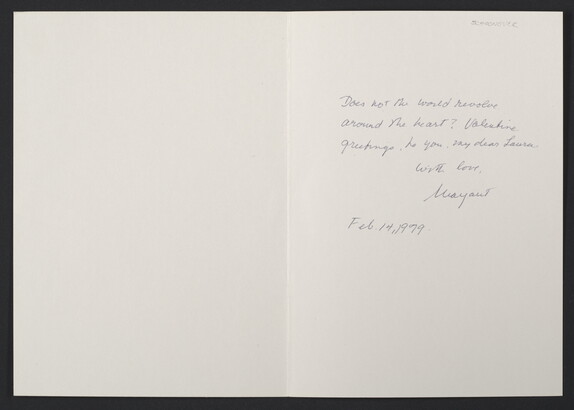 Does not the world revolve
around the heart? Valentine
greetings, to you, my dear Laura
With love,
Margaret
Feb. 14, 1979